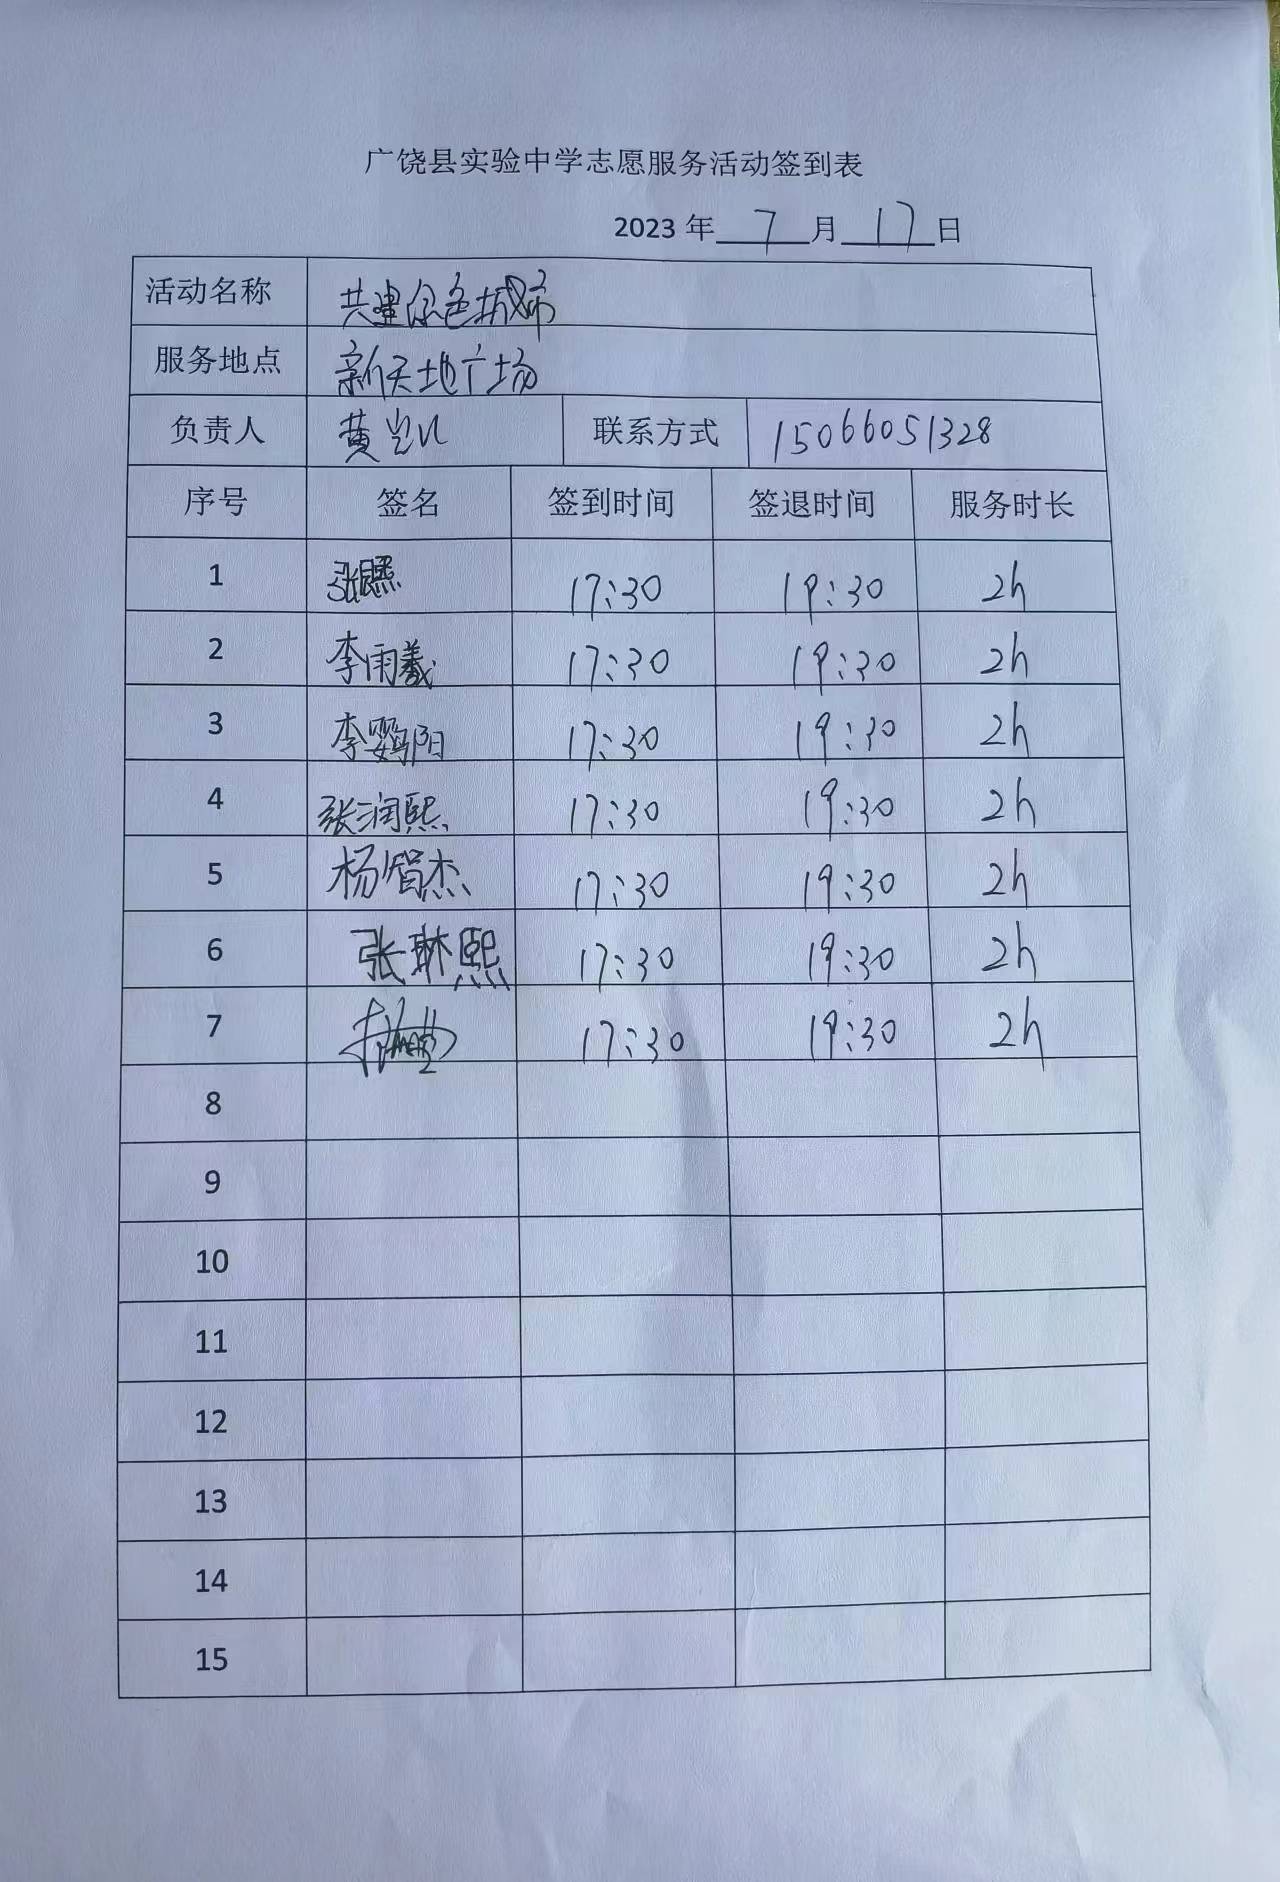 广饶县实验中学志愿服务活动签到表
2023 年 7 月 17 日
活动名称 共建绿色城市
服务地点 新天地广场
负责人 黄 联系方式 15066051328
序号 签名 签到时间 签退时间 服务时长
1 张 17:30 19:30 2h
2 李雨羲 17:30 19:30 2h
3 李鹦阳 17:30 19:30 2h
4 张润熙 17:30 19:30 2h
5 杨智杰 17:30 19:30 2h
6 张琳熙 17:30 19:30 2h
7 17:30 19:30 2h
8
9
10
11
12
13
14
15